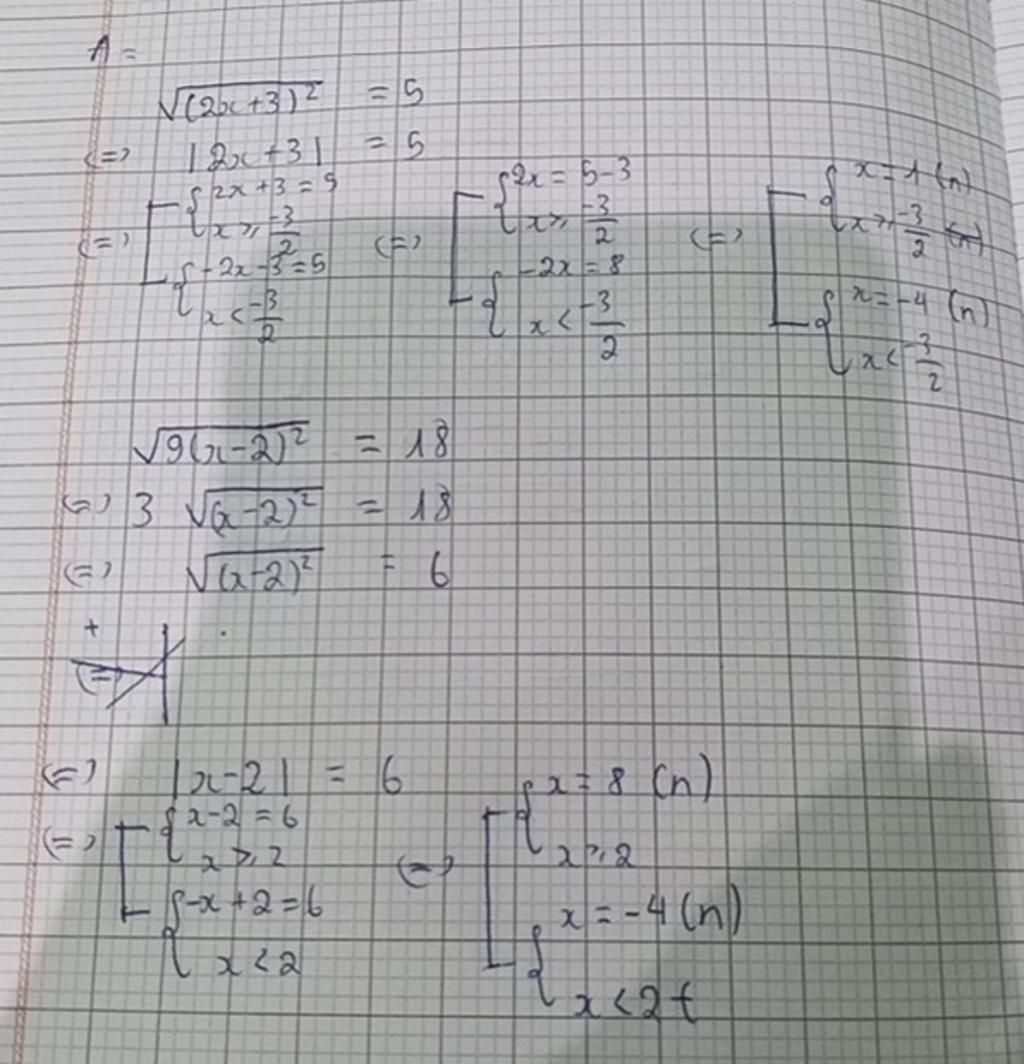 A =
√(2x+3)² = 5
<=> |2x+3| = 5
<=> [ { 2x+3 = 5 x ≥ -3/2 { -2x-3 = 5 x < -3/2 <=> [ { 2x = 5-3 x ≥ -3/2 { -2x = 8 x < -3/2 <=> [ { x = 1 (n) x ≥ -3/2 { x = -4 (n) x < -3/2
√9(x-2)² = 18
<=> 3 √(x-2)² = 18
<=> √(x-2)² = 6
+
<=> |x-2| = 6
<=> [ { x-2 = 6 x ≥ 2 { -x+2 = 6 x < 2 <=> [ { x = 8 (n) x ≥ 2 { x = -4 (n) x < 2 t